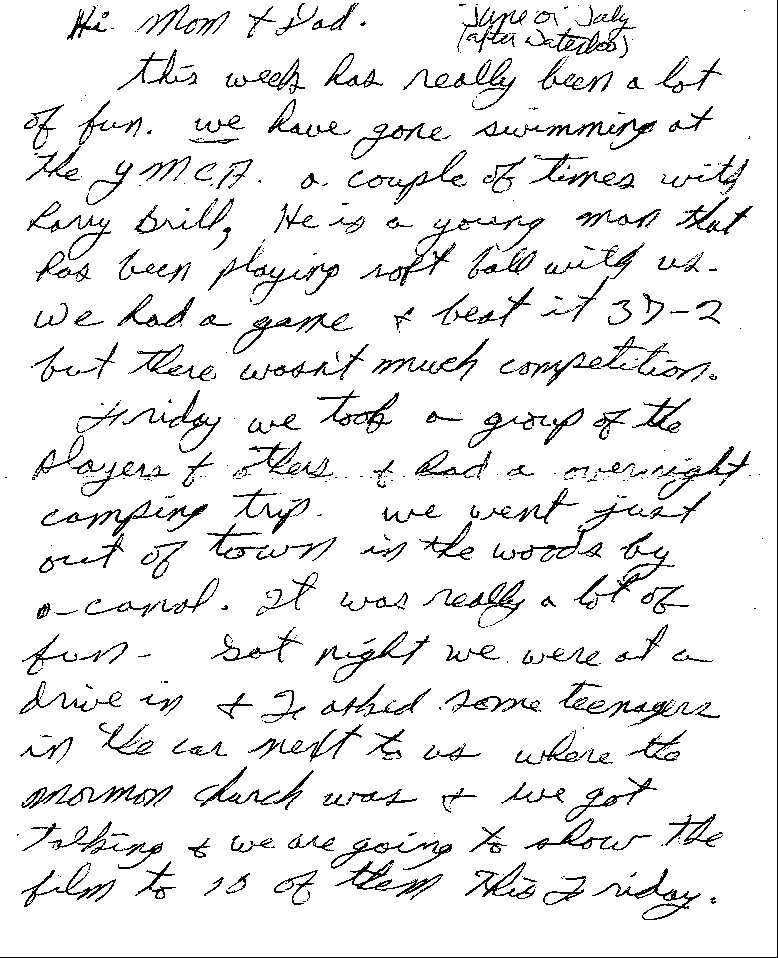 Hi Mom & Dad. June or July
(after Waterloo)
This week has really been a lot
of fun. we have gone swimming at
the YMCA. a couple of times with
Larry Brill, He is a young man that
has been playing soft ball with us.
we had a game & beat it 37-2
but there wasn't much competition.
Friday we took a group of the
players & others & had a overnight
camping trip. we went just
out of town in the woods by
a canal. It was really a lot of
fun- Sat night we were at a
drive in & I asked some teenagers
in the car next to us where the
mormon church was & we got
talking & we are going to show the
film to 10 of them This Friday.